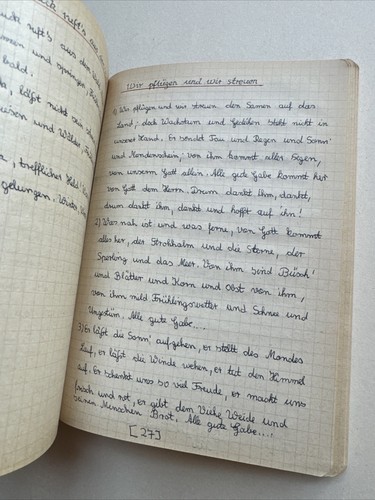 ruft's aus dem
und springen,
bald.
hilfst nicht
und Wälder,
trefflicher Held!
Wir pflügen und wir streuen
1) Wir pflügen und wir streuen den Samen auf das
Land; doch Wachstum und Gedeihen steht nicht in
unserer Hand. Er sendet Tau und Regen und Sonn'
und Mondenschein; von ihm kommt aller Segen,
von unserm Gott allein. Alle gute Gabe kommt her
von Gott dem Herrn. Drum dankt ihm, dankt,
drum dankt ihm, dankt und hofft auf ihn!
2) Was nah ist und was ferne, von Gott kommt
alles her, der Strohhalm und die Sterne, der
Sperling und das Meer. Von ihm sind Büsch'
und Blätter und Korn und Obst von ihm,
von ihm mild Frühlingswetter und Schnee und
Ungestüm. Alle gute Gabe....
3) Er läßt die Sonn' aufgehen, er stellt des Mondes
Lauf, er läßt die Winde wehen, er tut den Himmel
auf. Er schenkt uns so viel Freude, er macht uns
frisch und rot, er gibt dem Viehe Weide und
seinen Menschen Brot. Alle gute Gabe....
[27]